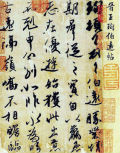 晉王珣伯遠帖
珣頓首頓首伯遠勝業情
期群從之寶自以羸患
志在優游始獲此出意
不剋申分別如昨永為疇
古遠隔嶺嶠不相瞻臨